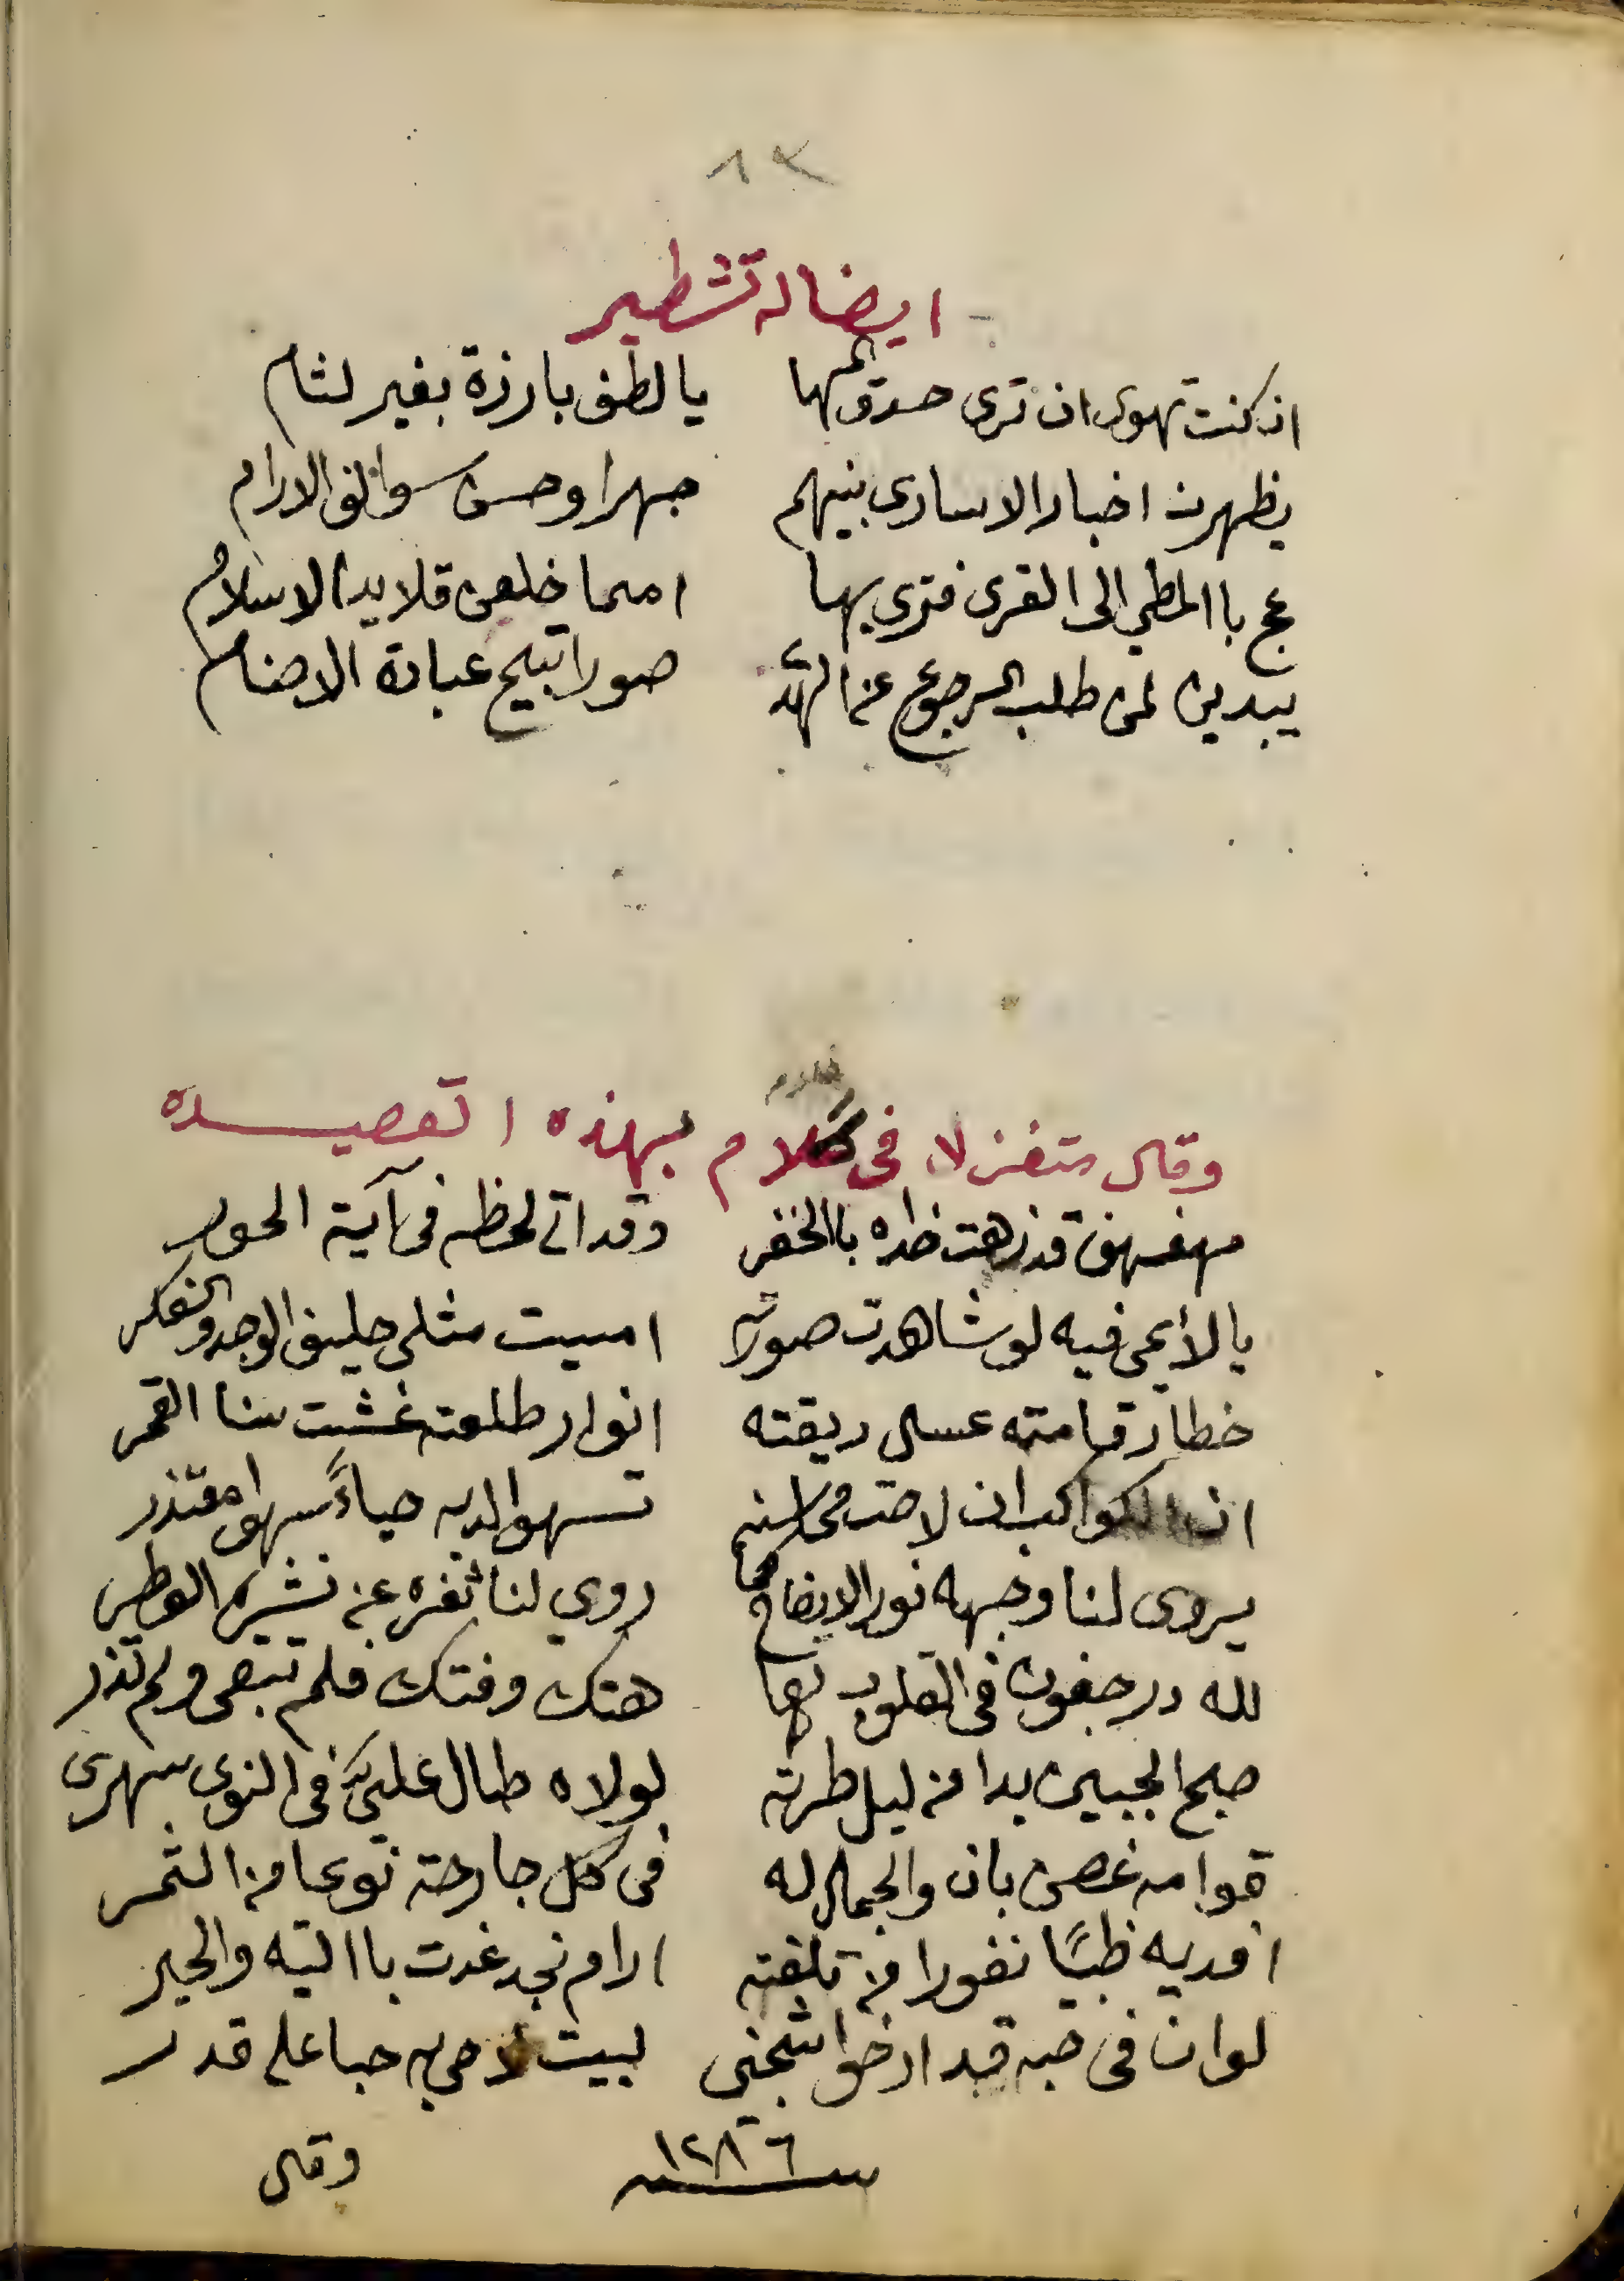 ٨٢
ايضا له تشطير
ان كنت تهوى ان ترى حدق المها يا لطف بارزة بغير لثام
يظهرن اخبار الاسارى بينهم جهرا وحسن سوالف الارام
عج باالمطي الى القرى فترى بها امما خلعن قلايد الاسلام
يبدين لمن طلب الرجوع عن الهدى صورا تبيح عبادة الاصنام
غلام
وقال متغزلا فى غلام بهذه القصيده
مهفهف قد زهت خداه باالخفر وقد اتى لحظه فى آية الحور
يا لأيمى فيه لو شاهدت صورته امسيت مثلى حليف الوجد والفكر
خطار قامته عسال ريقته انوار طلعته غشت سنا القمر
ان الكواكب ان لاحت محاسنه تسهوا لديه حياءً سهوا مقتذر
يروى لنا وجهه نور الايضاح كما روي لنا ثغره عن نشره العطر
لله در جفون فى القلوب لها هتك وفتك فلم تبقى ولم تذر
صبح الجبين بدا من ليل طرته لولاه طال علىّ فى النوى سهرى
قوامه غصن بان والجمال له فى كل جارحة نوعا من الثمر
افديه ظبيًا نفورا من تلفته ارام نجد غدت باالتيه والحير
لوان فى حبه قد ارخوا شجنى لبيت حبا على قدر
سنة ١٢٨٦
وقال